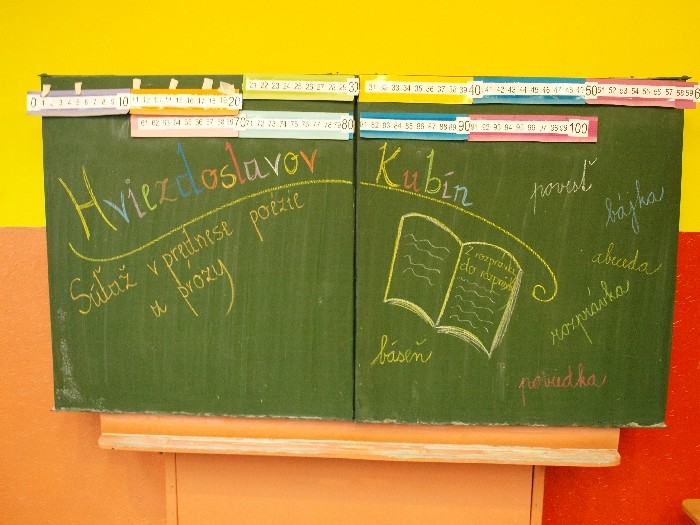 0 1 2 3 4 5 6 7 8 9 10 11 12 13 14 15 16 17 18 19 20 21 22 23 24 25 26 27 28 29 30 31 32 33 34 35 36 37 38 39 40 41 42 43 44 45 46 47 48 49 50 51 52 53 54 55 56 57 58 59 6
61 62 63 64 65 66 67 68 69 70 71 72 73 74 75 76 77 78 79 80 81 82 83 84 85 86 87 88 89 90 91 92 93 94 95 96 97 98 99 100
Hviezdoslavov Kubín
Súťaž v prednese poézie
a prózy
Z rozprávky
do rozprávky
povesť
bájka
abeceda
rozprávka
báseň
poviedka